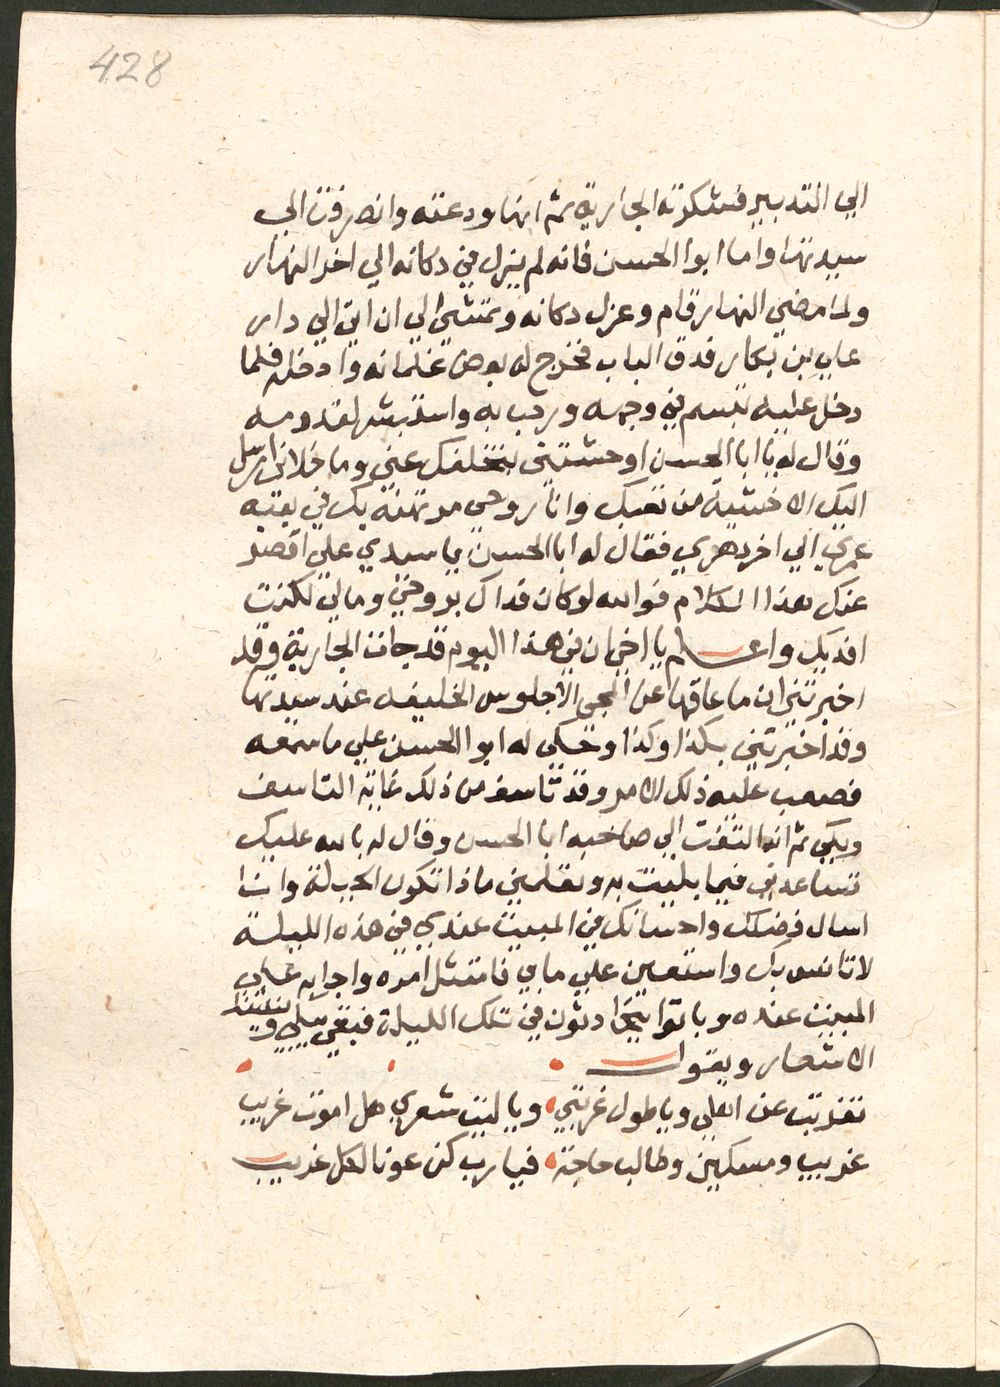 428
الي التدبير فشكرته الجارية ثم انها ودعته وانصرفت الي
سيدتها واما ابوا الحسن فانه لم ينزل في دكانه الي اخر النهار
ولما مضي النهار قام وعزل دكانه وتمشي الي ان اتي الي دار
علي بن بكار فدق الباب فخرج له بعض غلمانه وادخله فلما
دخل عليه تبسم في وجهه ورحب به واستبشر لقدومه
وقال له يا ابا الحسن اوحشتني بتخلفك عني وما خلاني ارسل
اليك الا خشية من تعبك وانا روحي مرتهنه بك في بقية
عمري الي اخر دهري فقال له ابا الحسن يا سيدي علي اقصر
عنك هذا الكلام فوالله لو كان فداك بروحي ومالي لكنت
افديك واعلم يا اخي ان في هذا اليوم قد جات الجارية وقد
اخبرتني ان ما عاقها عن المجي الا جلوس الخليفه عند سيدتها
وقد اخبرتني بكذا وكذا وحكي له ابوا الحسن علي ما سمعه
فصعب عليه ذلك الامر وقد تاسف من ذلك غاية التاسف
وبكي ثم انه التفت الي صاحبه ابا الحسن وقال له بالله عليك
تساعدني فيما بليت به وتعلمني ماذا تكون الحيلة وانا
اسال فضلك واحسانك في المبيت عندي في هذه الليلة
لاتانس بك واستعين علي ما بي فامتثل امره واجابه علي
المبيت عنده وباتوا يتحادثون في تلك الليلة فبقي يبكي و
الاشعار ويقول
تغربت عن اهلي ويا طول غربتي ويا ليت شعري هل اموت غريب
غريب ومسكين وطالب حاجة فيا رب كن عونا لكل غريب